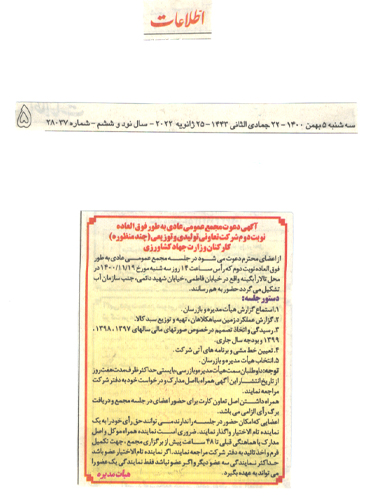 اطلاعات
سه شنبه ۵ بهمن ۱۴۰۰ - ۲۲ جمادی الثانی ۱۴۴۳ - ۲۵ ژانویه ۲۰۲۲ - سال نود و ششم - شماره ۲۸۰۳۷
۵
آگهی دعوت مجمع عمومی عادی به طور فوق العاده
نوبت دوم شرکت تعاونی تولیدی و توزیعی (چند منظوره)
کارکنان وزارت جهاد کشاورزی
از اعضای محترم دعوت می شود در جلسه مجمع عمومی عادی به طور
فوق العاده نوبت دوم که رأس ساعت ۱۴ روز سه شنبه مورخ ۱۴۰۰/۱۱/۱۹ در
محل تالار آبگینه واقع در خیابان فاطمی، خیابان شهید دائمی، جنب سازمان آب
تشکیل می گردد حضور به هم رسانند.
دستور جلسه:
۱. استماع گزارش هیأت مدیره و بازرسان.
۲. گزارش عملکرد زمین سیاهکلاهان، تهیه و توزیع سبد کالا.
۳. رسیدگی و اتخاذ تصمیم در خصوص صورتهای مالی سالهای ۱۳۹۷، ۱۳۹۸،
۱۳۹۹ و بودجه سال جاری.
۴. تعیین خط مشی و برنامه های آتی شرکت.
۵. انتخاب هیأت مدیره و بازرسان.
توجه: داوطلبان سمت هیأت مدیره و بازرسی، بایستی حداکثر ظرف مدت هفت روز
از تاریخ انتشار این آگهی همراه با اصل مدارک و درخواست خود به دفتر شرکت
مراجعه نمایند.
همراه داشتن اصل تعاون کارت برای حضور اعضای در جلسه مجمع و دریافت
برگ رأی الزامی می باشد.
اعضایی که امکان حضور در جلسه را ندارند می توانند حق رأی خود را به یک
نماینده تام الاختیار واگذار نمایند. ضروری است نماینده همراه موکل و اصل
مدارک با هماهنگی قبلی تا ۴۸ ساعت پیش از برگزاری مجمع، جهت تکمیل
فرم و اخذ تائید به دفتر شرکت مراجعه نمایند. اگر نماینده تام الاختیار عضو باشد
حداکثر نمایندگی سه عضو دیگر و اگر عضو نباشد فقط نمایندگی یک عضو را
می تواند به عهده بگیرد.
هیأت مدیره